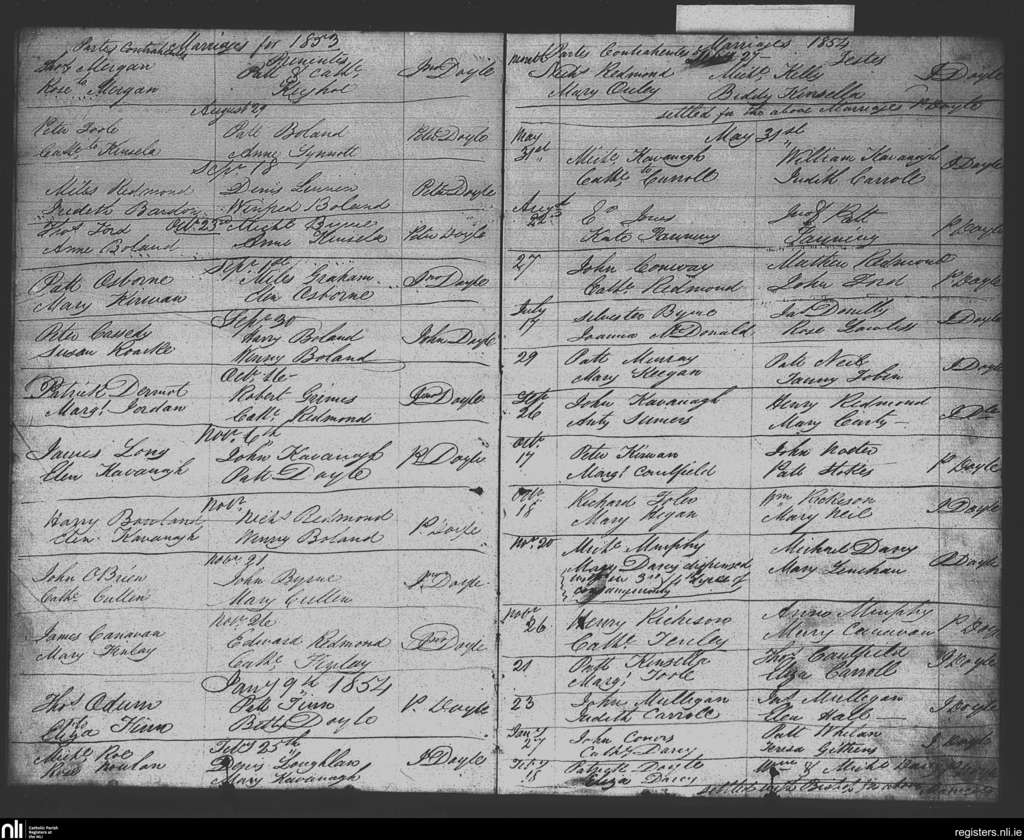 Marriages for 1853
Partes Contrahentes
Thos Mergan Patt & Cathe Jno Doyle
Rose to Mergan Keghoe
August 29
Peter Toole Patt Boland Peter Doyle
Cathe to Kinsela Anne Synnott
Sept 18
Miles Redmond Denis Lennen Peter Doyle
Judeth Bardon Winfred Boland
Thos Ford Octr 23rd Michl Byrne Peter Doyle
Anne Boland Anne Kinsela
Sepr 11th
Patt Osborne Miles Graham Jno Doyle
Mary Kirwan Elen Osborne
Sepr 30
Peter Cassedy Harry Boland John Doyle
Susan Roarke Winny Boland
Octr 16
Patrick Dermot Robert Grimes Jno Doyle
Margt Jordan Cathe Redmond
Novr 6th
James Long John Kavanagh P Doyle
Elen Kavanagh Patt Doyle
Novr
Harry Bowland Richd Redmond P Doyle
Elen Kavanagh Winny Boland
Novr 21
John O'Brien John Byrne Jno Doyle
Cathe Cullen Mary Cullen
Novr 26
James Canavan Edward Redmond Jno Doyle
Mary Finlay Cathe Finlay
Jany 9th 1854
Thos Odum Patt Finn P. Doyle
Eliza Finn Betty Doyle
Feby 25th
Michl Roe Denis Loughlan P Doyle
Rose Nowlan Mary Kavanagh
Marriages 1854
Partes Contrahentes Testes
Richd Redmond Michl Kelly J Doyle
Mary Curley Biddy Kinsella
settled for the above Marriages P Doyle
May 31st
May
31st Michl Kavanagh William Kavanagh J Doyle
Cathe to Carroll Judith Carroll
August
22 Ed Jones Jno & Patt P Doyle
Kate Fanning Fanning
27 John Conway Mathew Redmond P Doyle
Cathe Redmond John Ford
July
17 Silvester Byrne Jas Donelly J Doyle
Joanna McDonald Rose Lawless
29 Patt Murray Patt Neil J Doyle
Mary Keegan Fanny Tobin
Sept
26 John Kavanagh Henry Redmond
Anty Sumers Mary Carty
Octr
17 Peter Kirwan John Rooter P Doyle
Margt Caulfield Patt Stokes
Octr
18 Richard Toler Wm Rickeson J Doyle
Mary Regan Mary Neil
Novr 20 Michl Murphy Michael Darcy P Doyle
Mary Darcy dispensed Mary Lenehan
with in 3rd degree of
consanguinity
Novr
26 Henry Rickeson Anne Murphy P Doyle
Cathe Terley Mary Canavan
21 Patt Kinsella Thos Caulfield J Doyle
Margt Toole Eliza Carroll
23 John Mullegan Jas Mullegan J Doyle
Judith Carroll Elen Hall
Jany
27 John Conors Patt Whelan J Doyle
Cathe Darcy Teresa Githens
Feby
18 Patrick Doyle Michl Darcy
Eliza Darcy
nli
Catholic Parish
Registers at
the NLI
registers.nli.ie